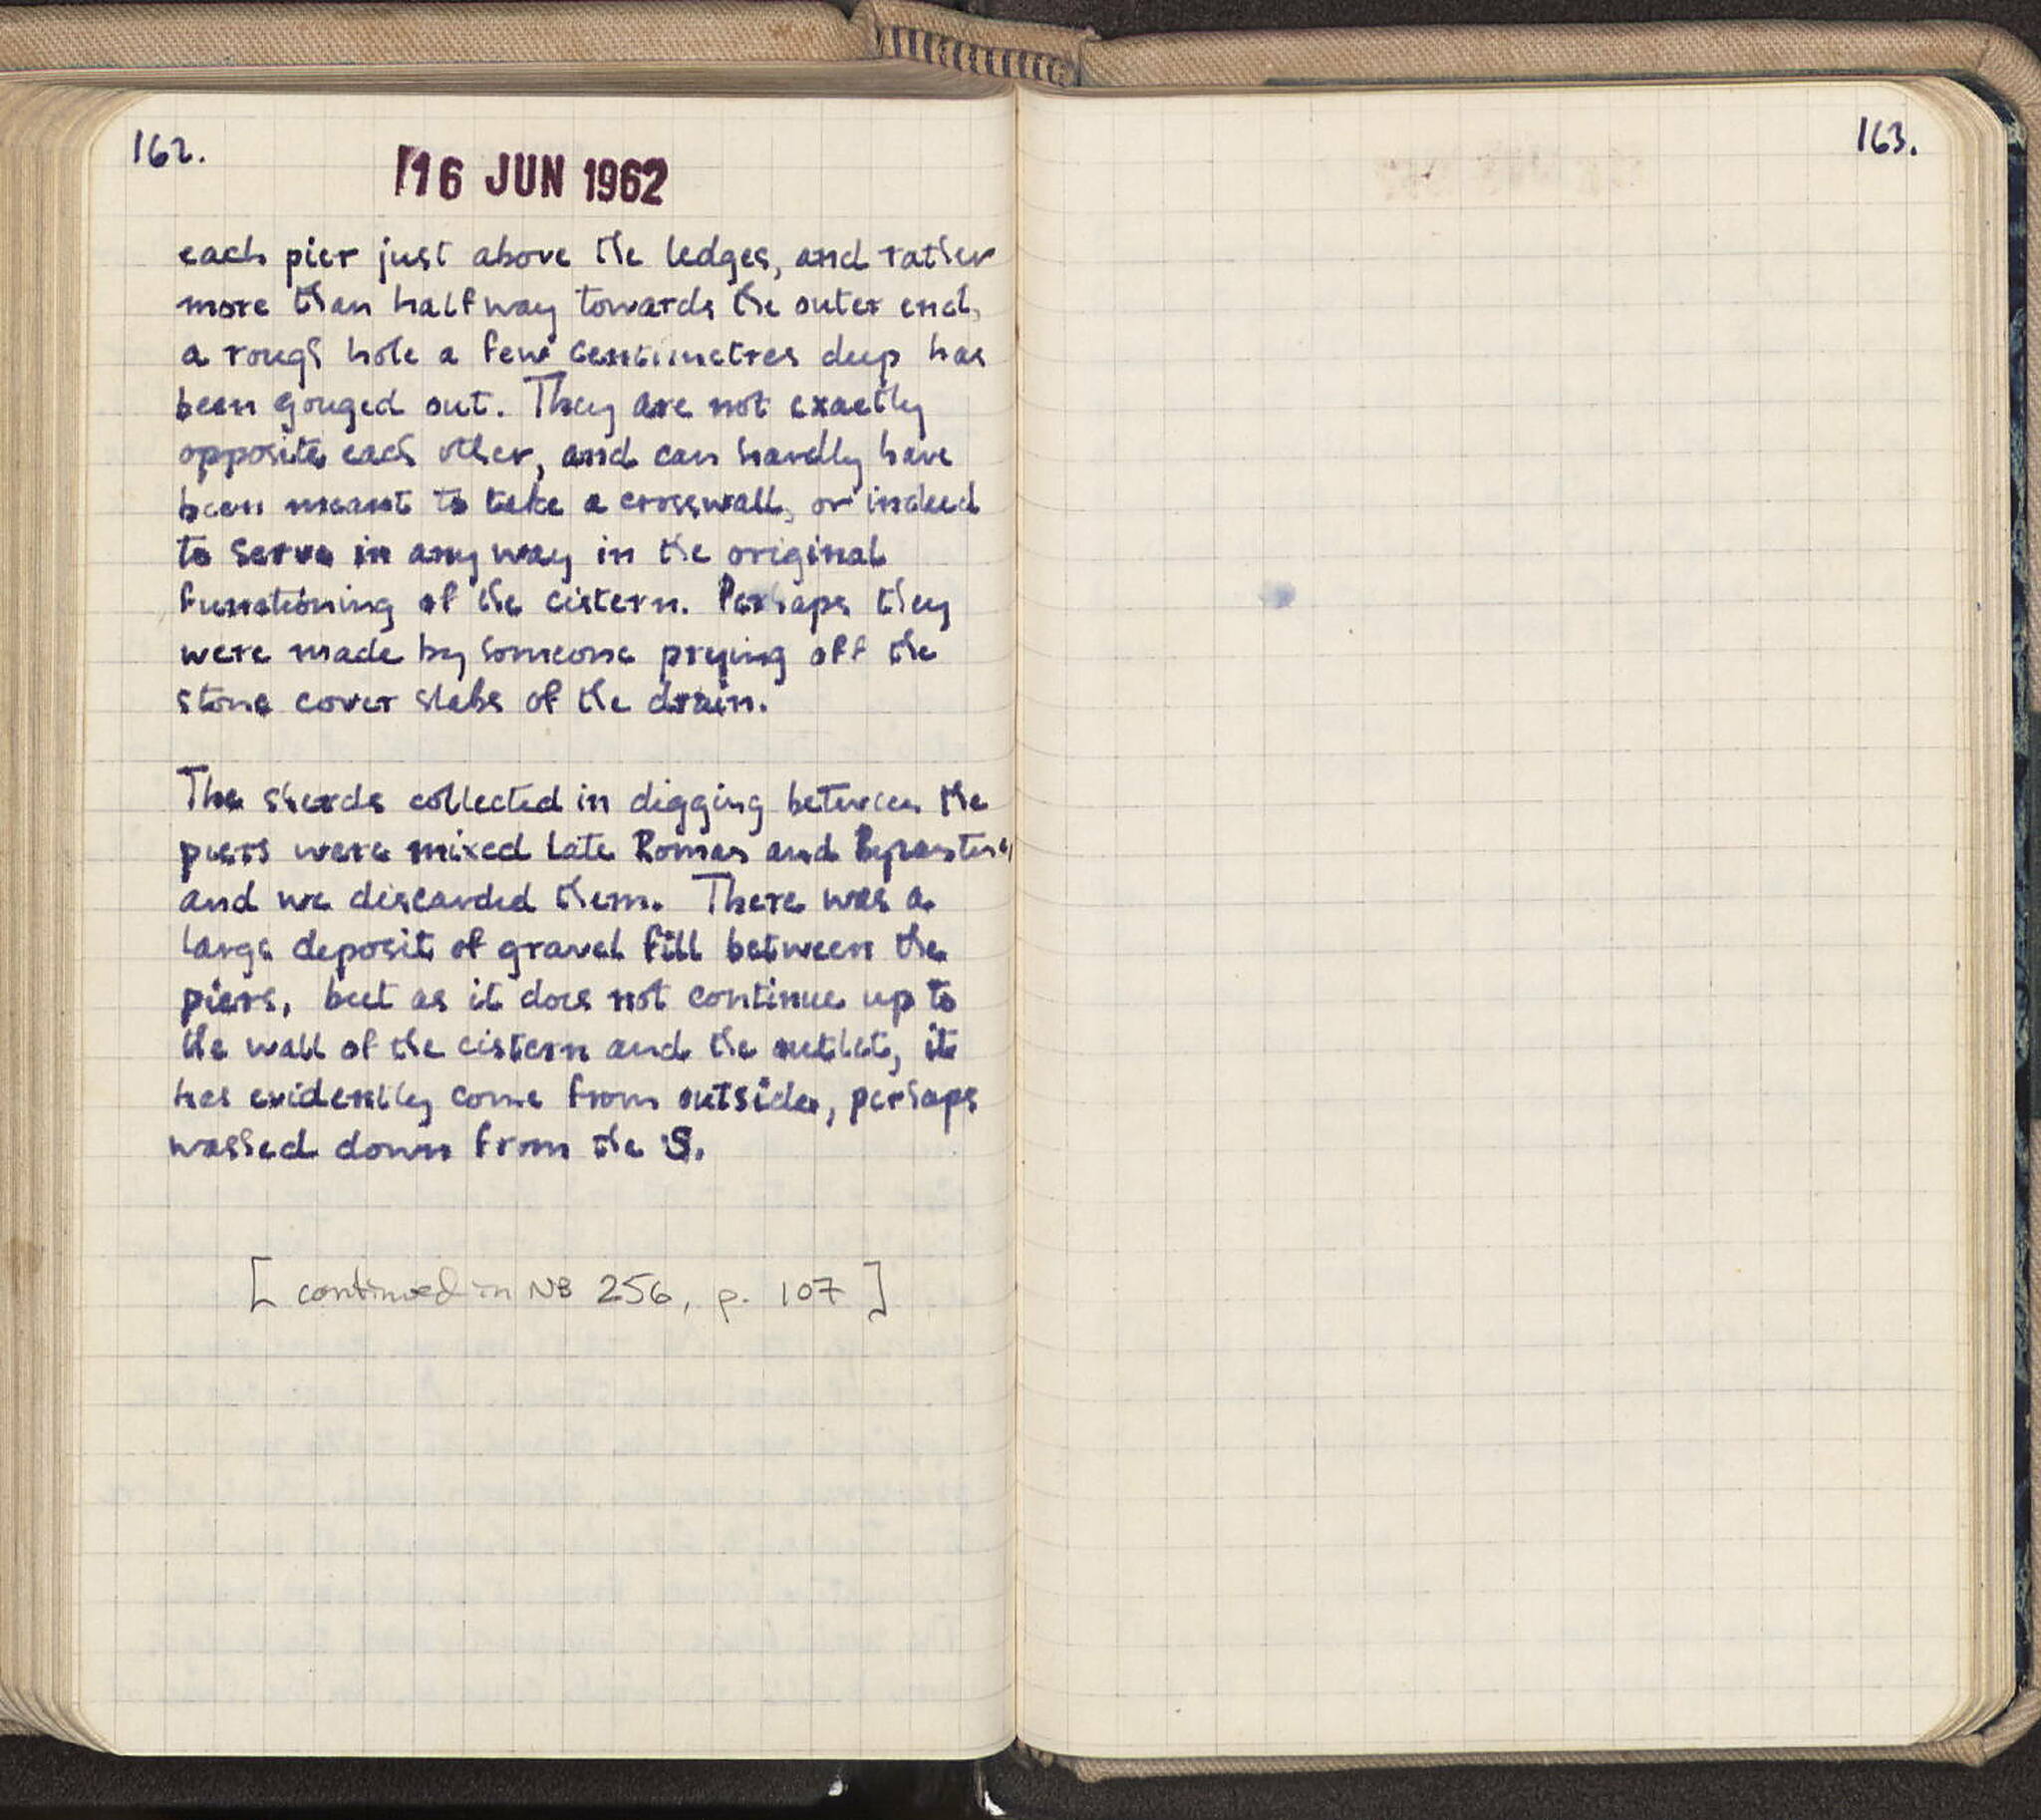 162.
16 JUN 1962
each pier just above the ledges, and rather
more than halfway towards the outer end,
a rough hole a few centimetres deep has
been gouged out. They are not exactly
opposite each other, and can hardly have
been meant to take a crosswall, or indeed
to serve in any way in the original
functioning of the cistern. Perhaps they
were made by someone prying off the
stone cover slabs of the drain.
The sherds collected in digging between the
piers were mixed Late Roman and Byzantine,
and we discarded them. There was a
large deposit of gravel fill between the
piers, but as it does not continue up to
the wall of the cistern and the outlet, it
has evidently come from outside, perhaps
washed down from the S.
[ continued in NB 256, p. 107 ]
163.